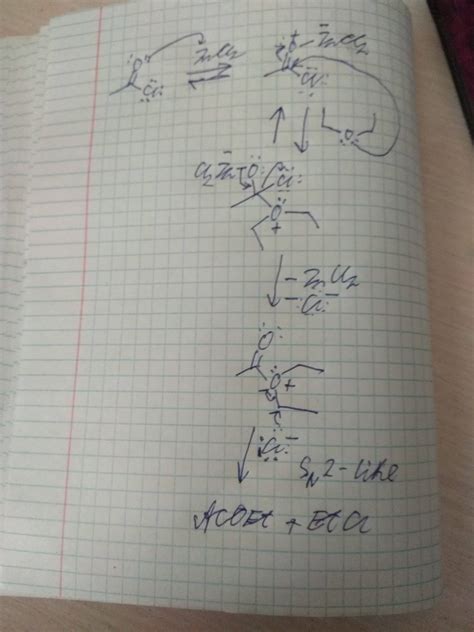 O ZnCl₂ O⁺ – Z̄nCl₂
Cl Cl
O
Cl₂Z̄n – O Cl
O
+
– ZnCl₂
– Cl⁻
O
O +
Cl⁻
S_N2-like
AcOEt + EtCl